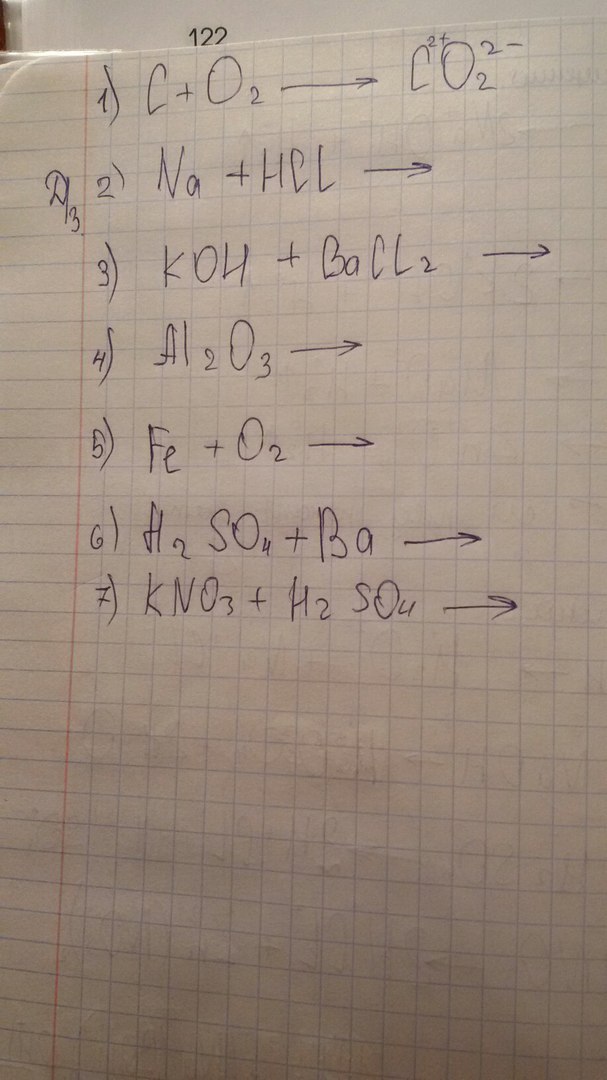 122
1) C + O₂ ⟶ C²⁺O₂²⁻
Д/з 2) Na + HCl ⟶
3) KOH + BaCl₂ ⟶
4) Al₂O₃ ⟶
5) Fe + O₂ ⟶
6) H₂SO₄ + Ba ⟶
7) KNO₃ + H₂SO₄ ⟶